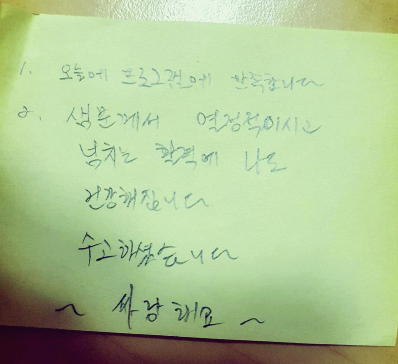 1. 오늘에 프로그램에 만족합니다
2. 생문께서 열정적이시고
넘치는 활력에 나도
건강해집니다
수고하셨습니다
~ 싸랑해요 ~